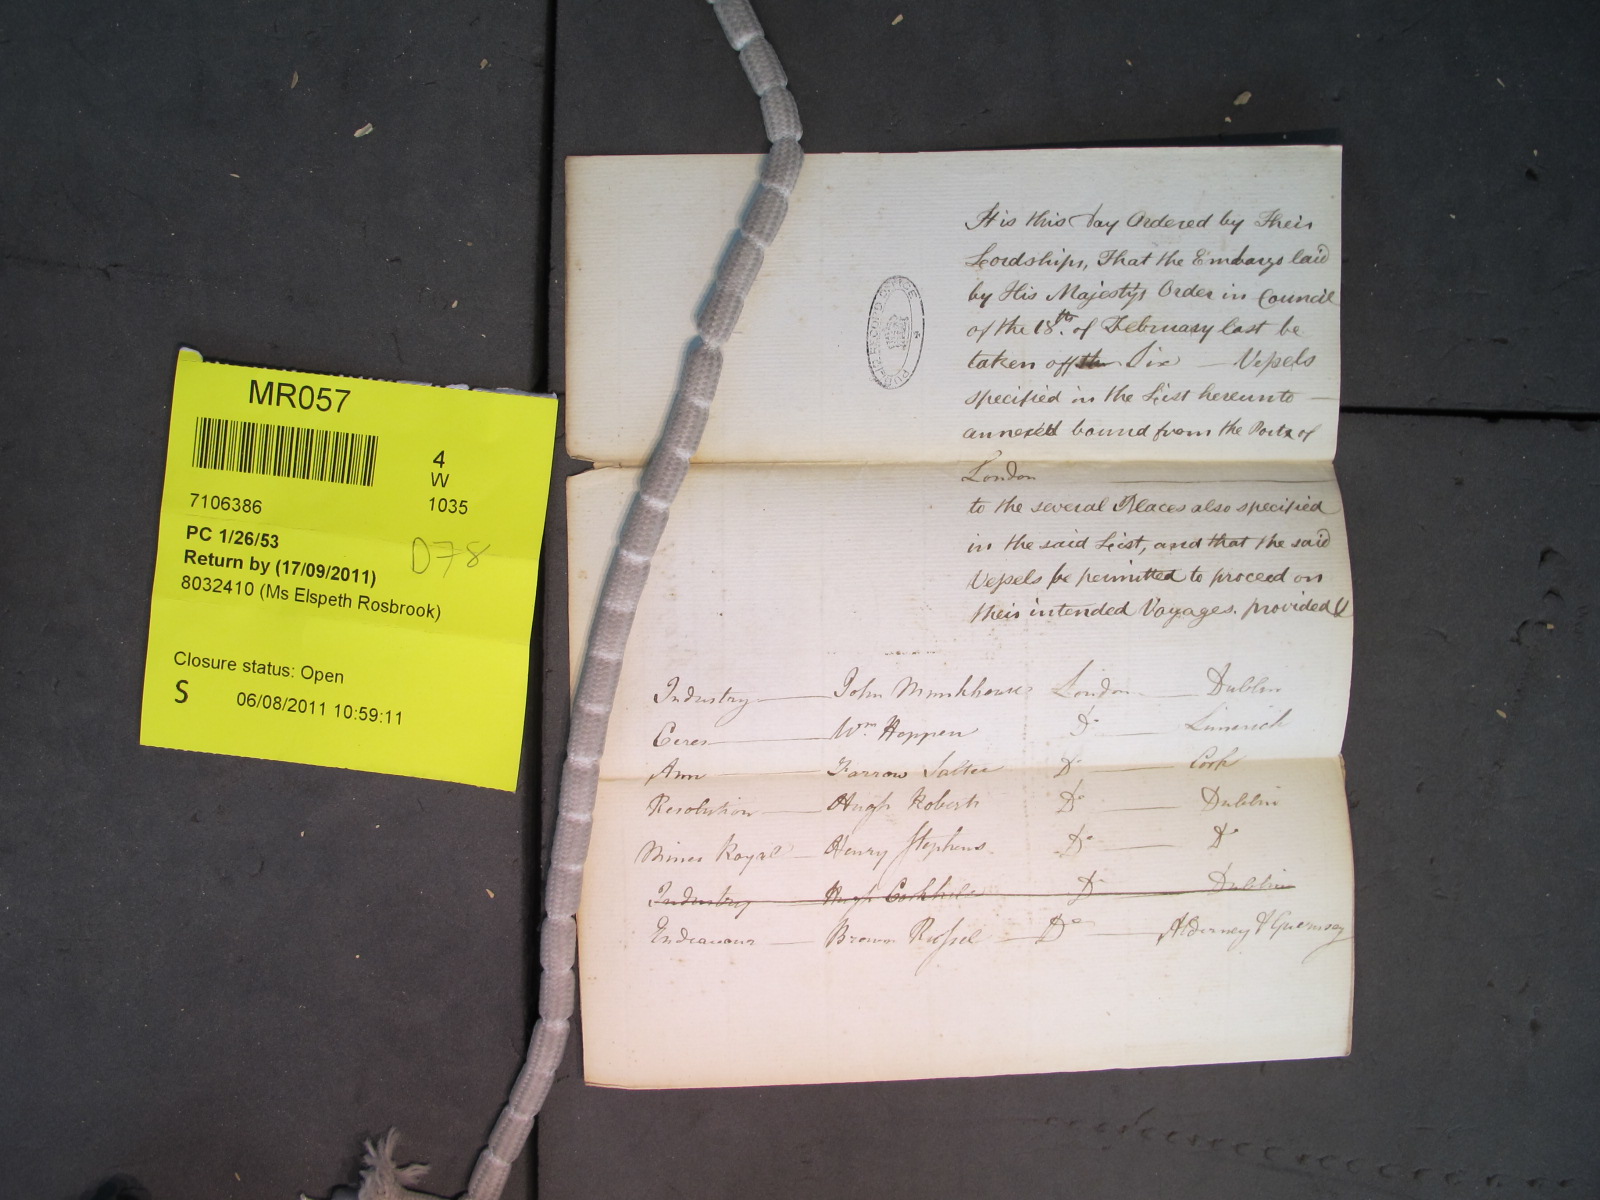 MR057
4
W
7106386
1035
PC 1/26/53
D78
Return by (17/09/2011)
8032410 (Ms Elspeth Rosbrook)
Closure status: Open
S
06/08/2011 10:59:11
PUBLIC RECORD OFFICE
It is this Day Ordered by Their
Lordships, That the Embargo laid
by His Majesty's Order in Council
of the 18th. of February last be
taken off the Six — Vessels
specified in the List hereunto —
annexed bound from the Ports of
London
to the several Places also specified
in the said List, and that the said
Vessels be permitted to proceed on
their intended Voyages. provided &
Industry — John Monkhouse London — Dublin
Ceres — Wm Hoppen Do — Limerick
Ann — Farrow Salter Do — Cork
Resolution — Hugh Roberts Do — Dublin
Mines Royal — Henry Stephens Do — Do
Industry Hugh Do Dublin
Endeavour — Brown Russel — Do — Alderney & Guernsey